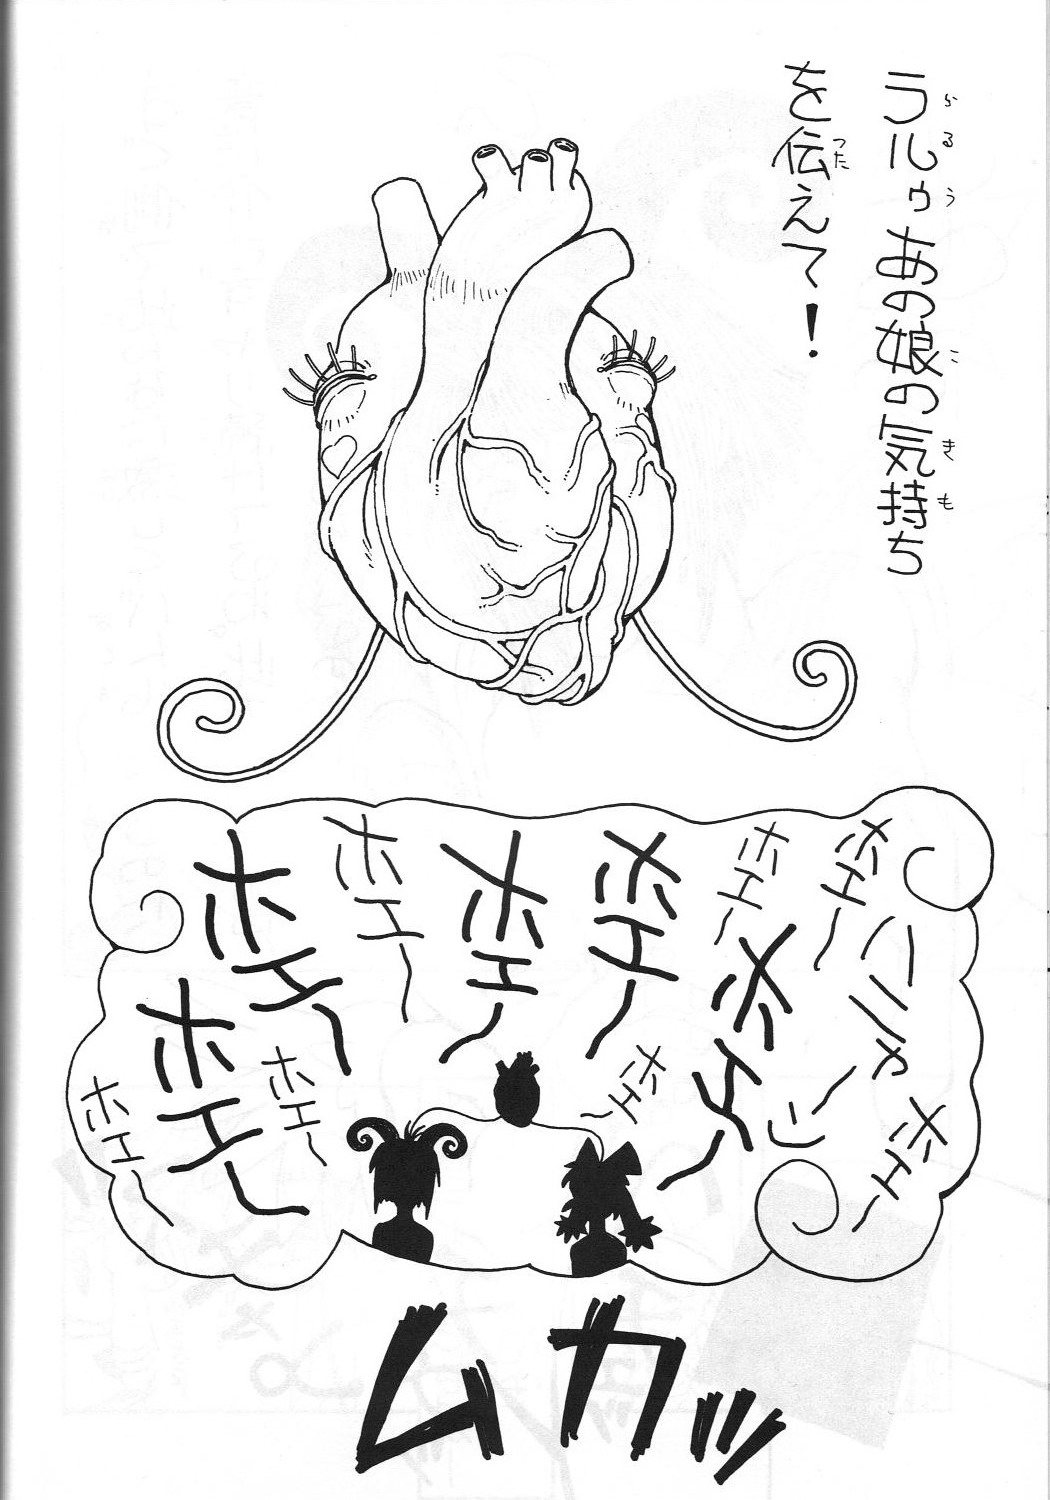 ラルゥあの娘の気持ち
らるう
こ
きも
を伝えて!
つた
ホエ〜
ハニャ〜ン
ホエ〜
ホエ〜
ホエ〜
ホエ〜
ホエ〜
ホエ〜
ホエ〜
ホエ〜
ホエ〜
ホエ〜
ホエ〜
ムカッ